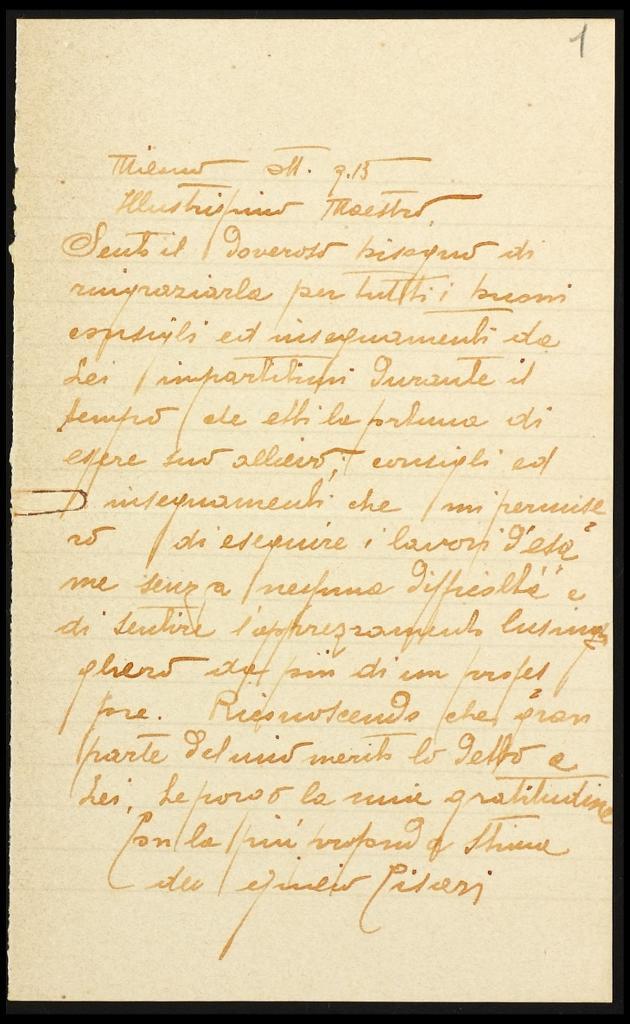 1
Milano ott. 9.15
Illustrissimo Maestro,
Sento il doveroso bisogno di
ringraziarla per tutti i buoni
consigli ed insegnamenti da
Lei impartitimi durante il
tempo che ebbi la fortuna di
essere suo allievo; consigli ed
insegnamenti che mi permise
ro di eseguire i lavori d'esa
me senza nessuna difficoltà e
di sentire l'apprezzamento lusin
ghero da più di un profes
sore. Riconoscendo che gran
parte del mio merito lo debbo a
Lei, Le porgo la mia gratitudine
Con la più profonda stima
Pisari